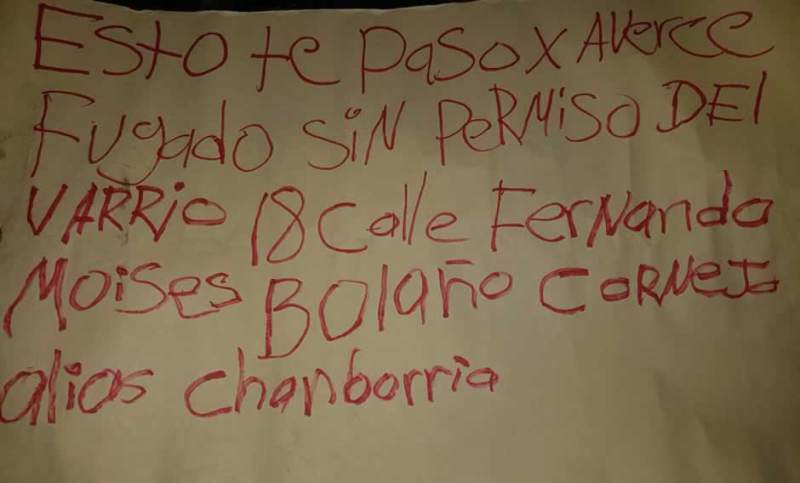 Esto te Paso x Averce
Fugado SiN PeRMiso DEl
VARRio 18 Calle FerNando
Moises BOlaño CoRNeJo
alias Chanborria